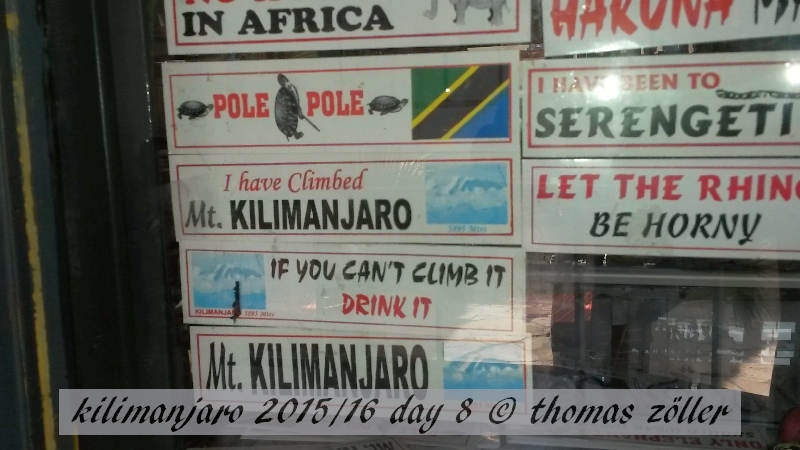 IN AFRICA
HAKUNA
POLE POLE
I HAVE BEEN TO
SERENGETI
I have Climbed
Mt. KILIMANJARO
5895 Mtrs
LET THE RHINO
BE HORNY
IF YOU CAN'T CLIMB IT
DRINK IT
KILIMANJARO 5895 Mtrs
Mt. KILIMANJARO
kilimanjaro 2015/16 day 8 © thomas zöller
ONLY ELEPH